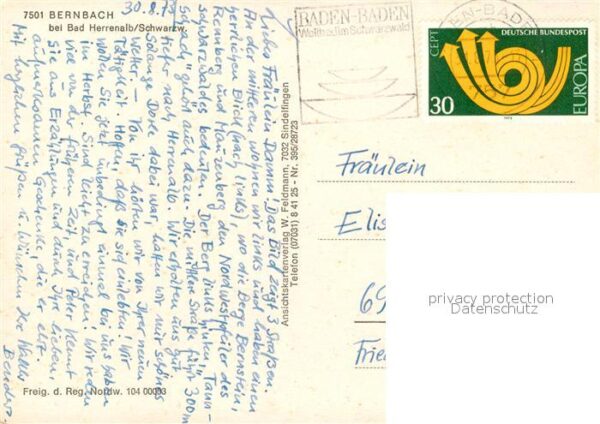 7501 BERNBACH
bei Bad Herrenalb/Schwarzw.
30.8.73
Liebes Fräulein Damm! Das Bild zeigt 3 Straßen.
An der mittleren wohnen wir links und haben einen
herrlichen Blick (nach links), wo die Berge Bernstein,
Rennberg und den Nordwestpfeiler des
Schwarzwaldes bedeuten. Der Berg links hinten "Tann-
schach" gehört auch dazu. Die mittlere Straße führt 300 m
tiefer nach Herrenalb. Wir erholten uns gut
Solange Dore dabei war, hatten wir nur schönes
Wetter. Von ihr hörten wir von Ihrer neuen
Tätigkeit. Hoffen, daß Sie sich einlebten! Wir
wollen Sie jetzt unbedingt einmal bei uns haben
im Herbst. Sind leicht zu erreichen! Wir reden
viel von der frühern Zeit, und Peter kennt
Sie aus Erzählungen und durch Ihr liebes,
Geschenk, die er oft
Mit herzlichen Grüßen u. Wünschen Ihre
Freig. d. Reg. Nordw. 104 00003
Ansichtskartenverlag W. Feldmann, 7032 Sindelfingen
Telefon (07031) 8 41 25 - Nr. 395/28723
BADEN-BADEN
Weltbad im Schwarzwald
EN-BAD
CEPT
DEUTSCHE BUNDESPOST
EUROPA
30
1973
Fräulein
Elis
69
Frie
privacy protection
Datenschutz